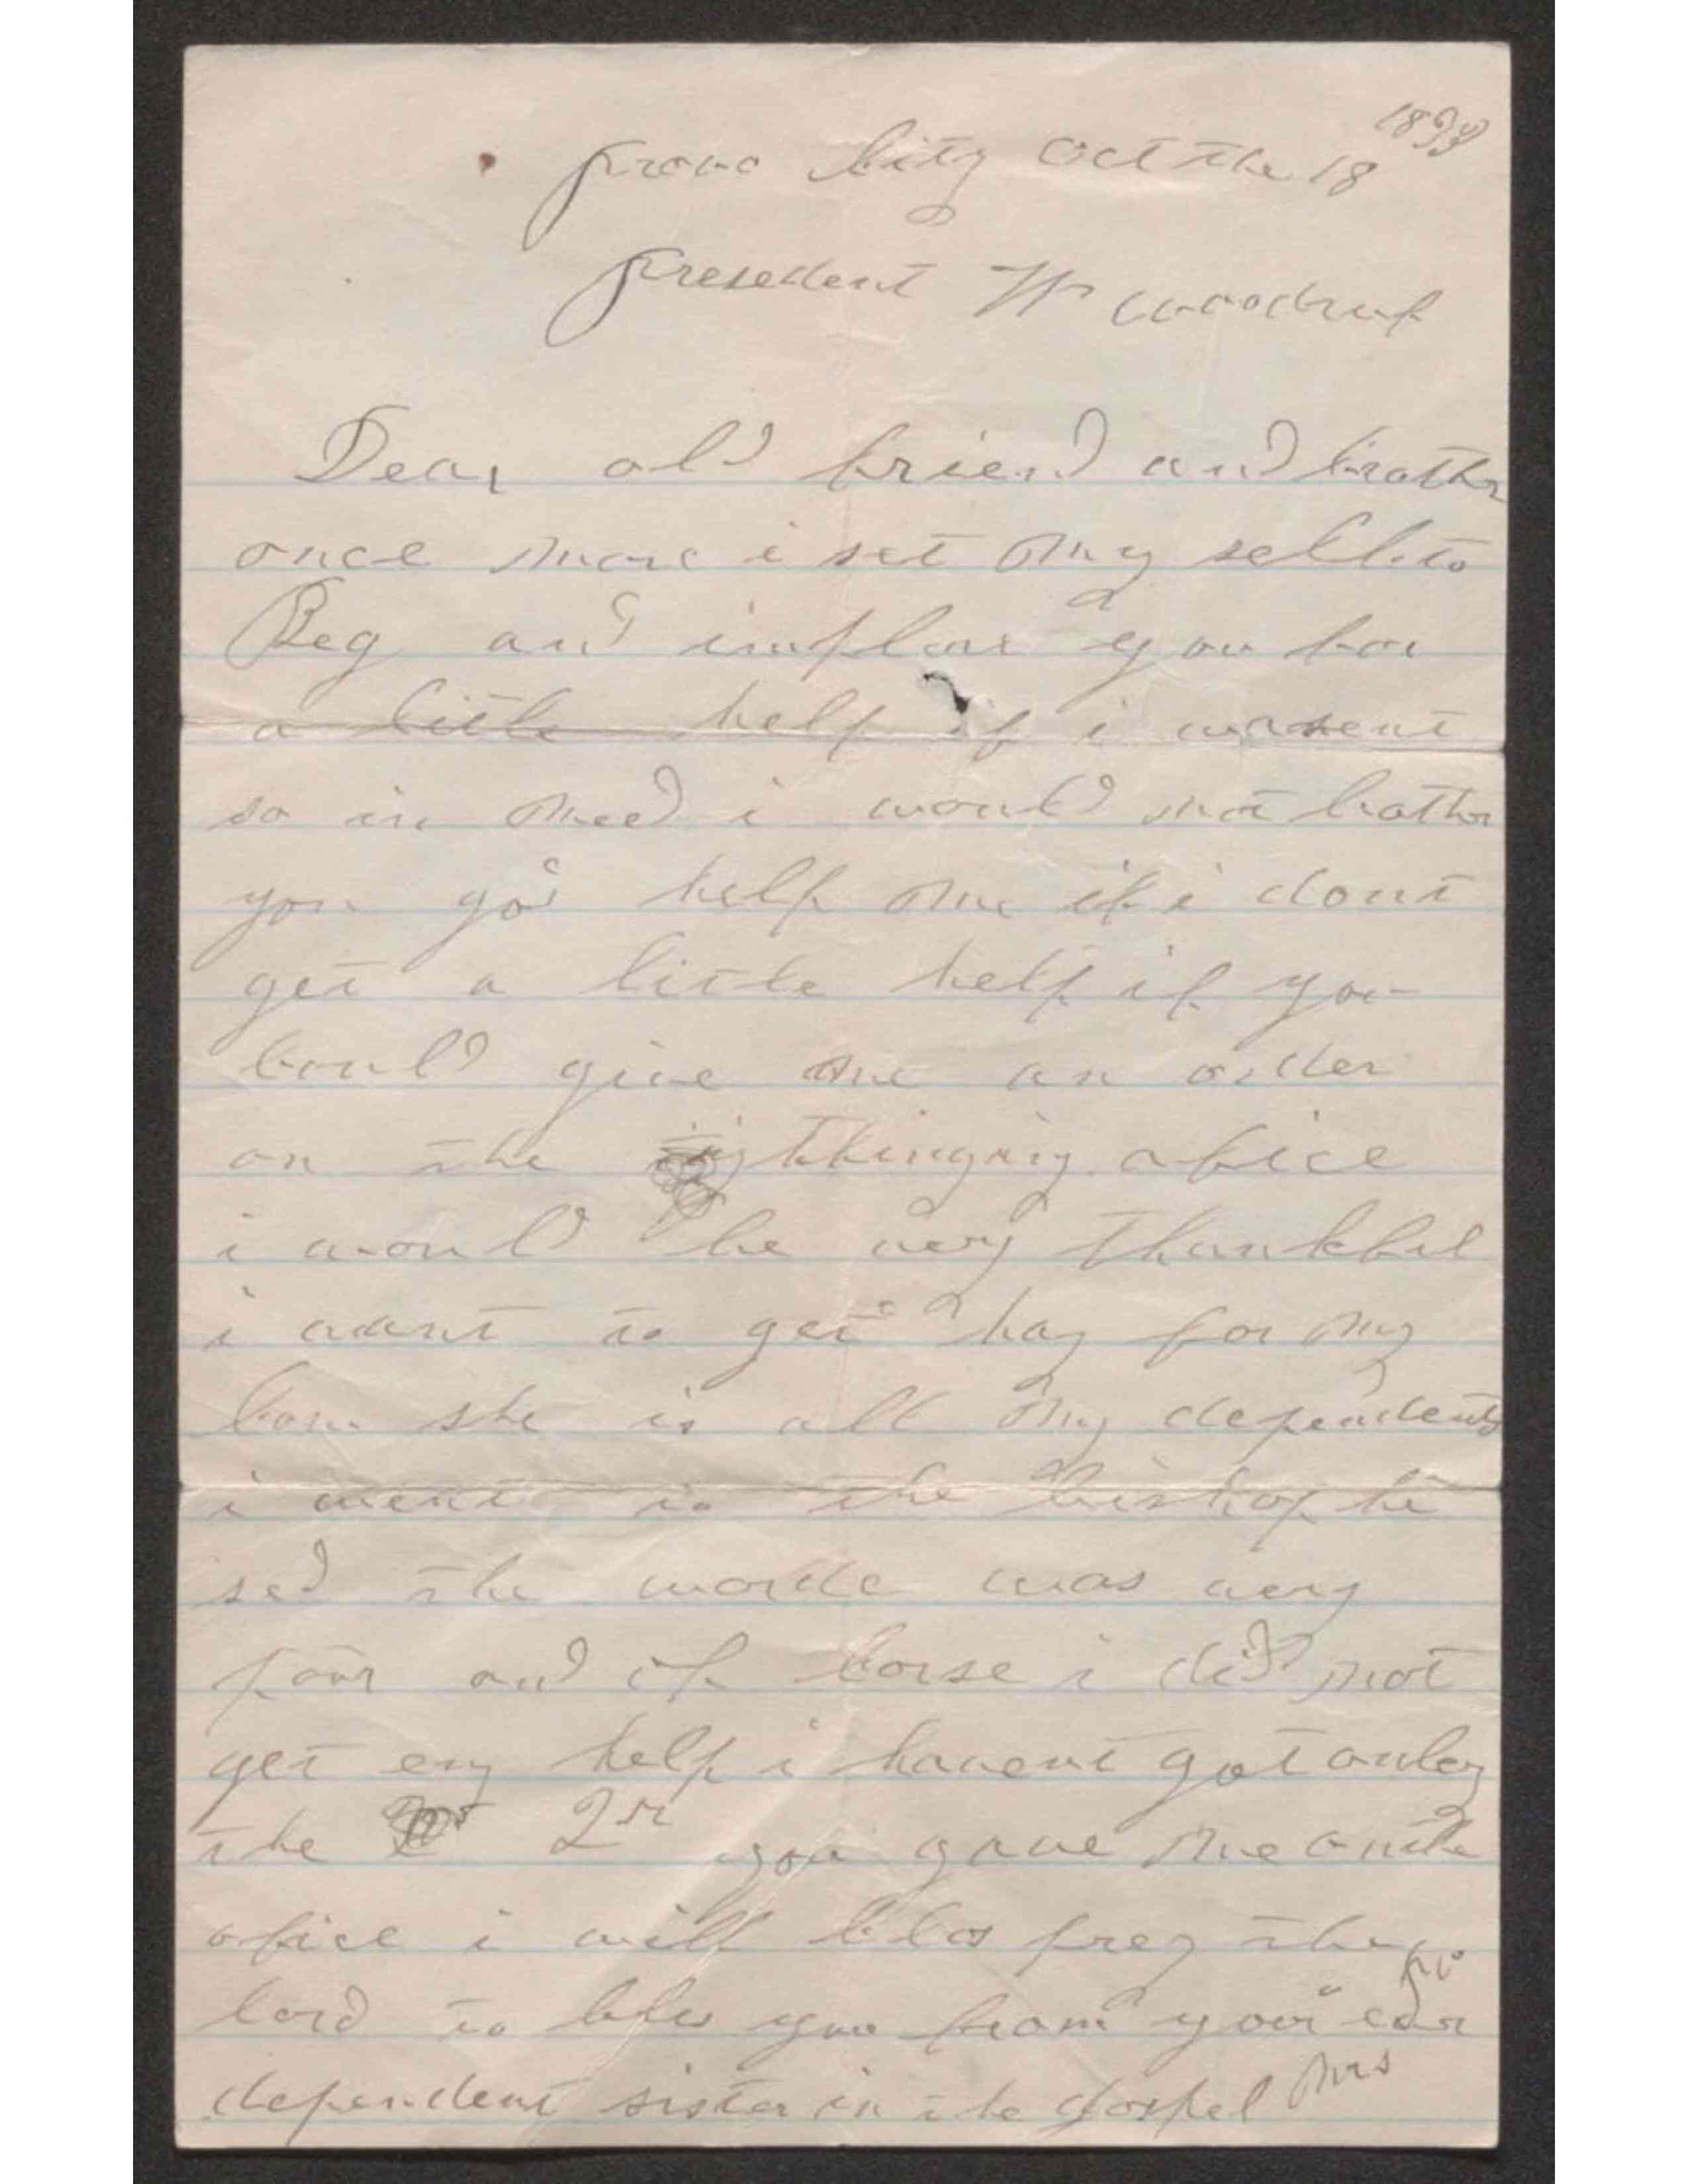 provo City Oct the 18
presedent W woodruf
Dear old friend and brother
once more i set my self to
Beg and implore you for
a little help if i wasent
so in need i would not bother
you god help me if i dont
get a little help if you
could give me an order
on the tithinging ofice
i would be very thankful
i want to get hay for my
cow she is all my dependents
i went to the bishop he
sed the worde was very
poor and of corse i did not
get eny help i havent got onley
the 2 you gave me on the
ofice i will prey the
lord to bles you from your
dependent sister in the gospel Mrs